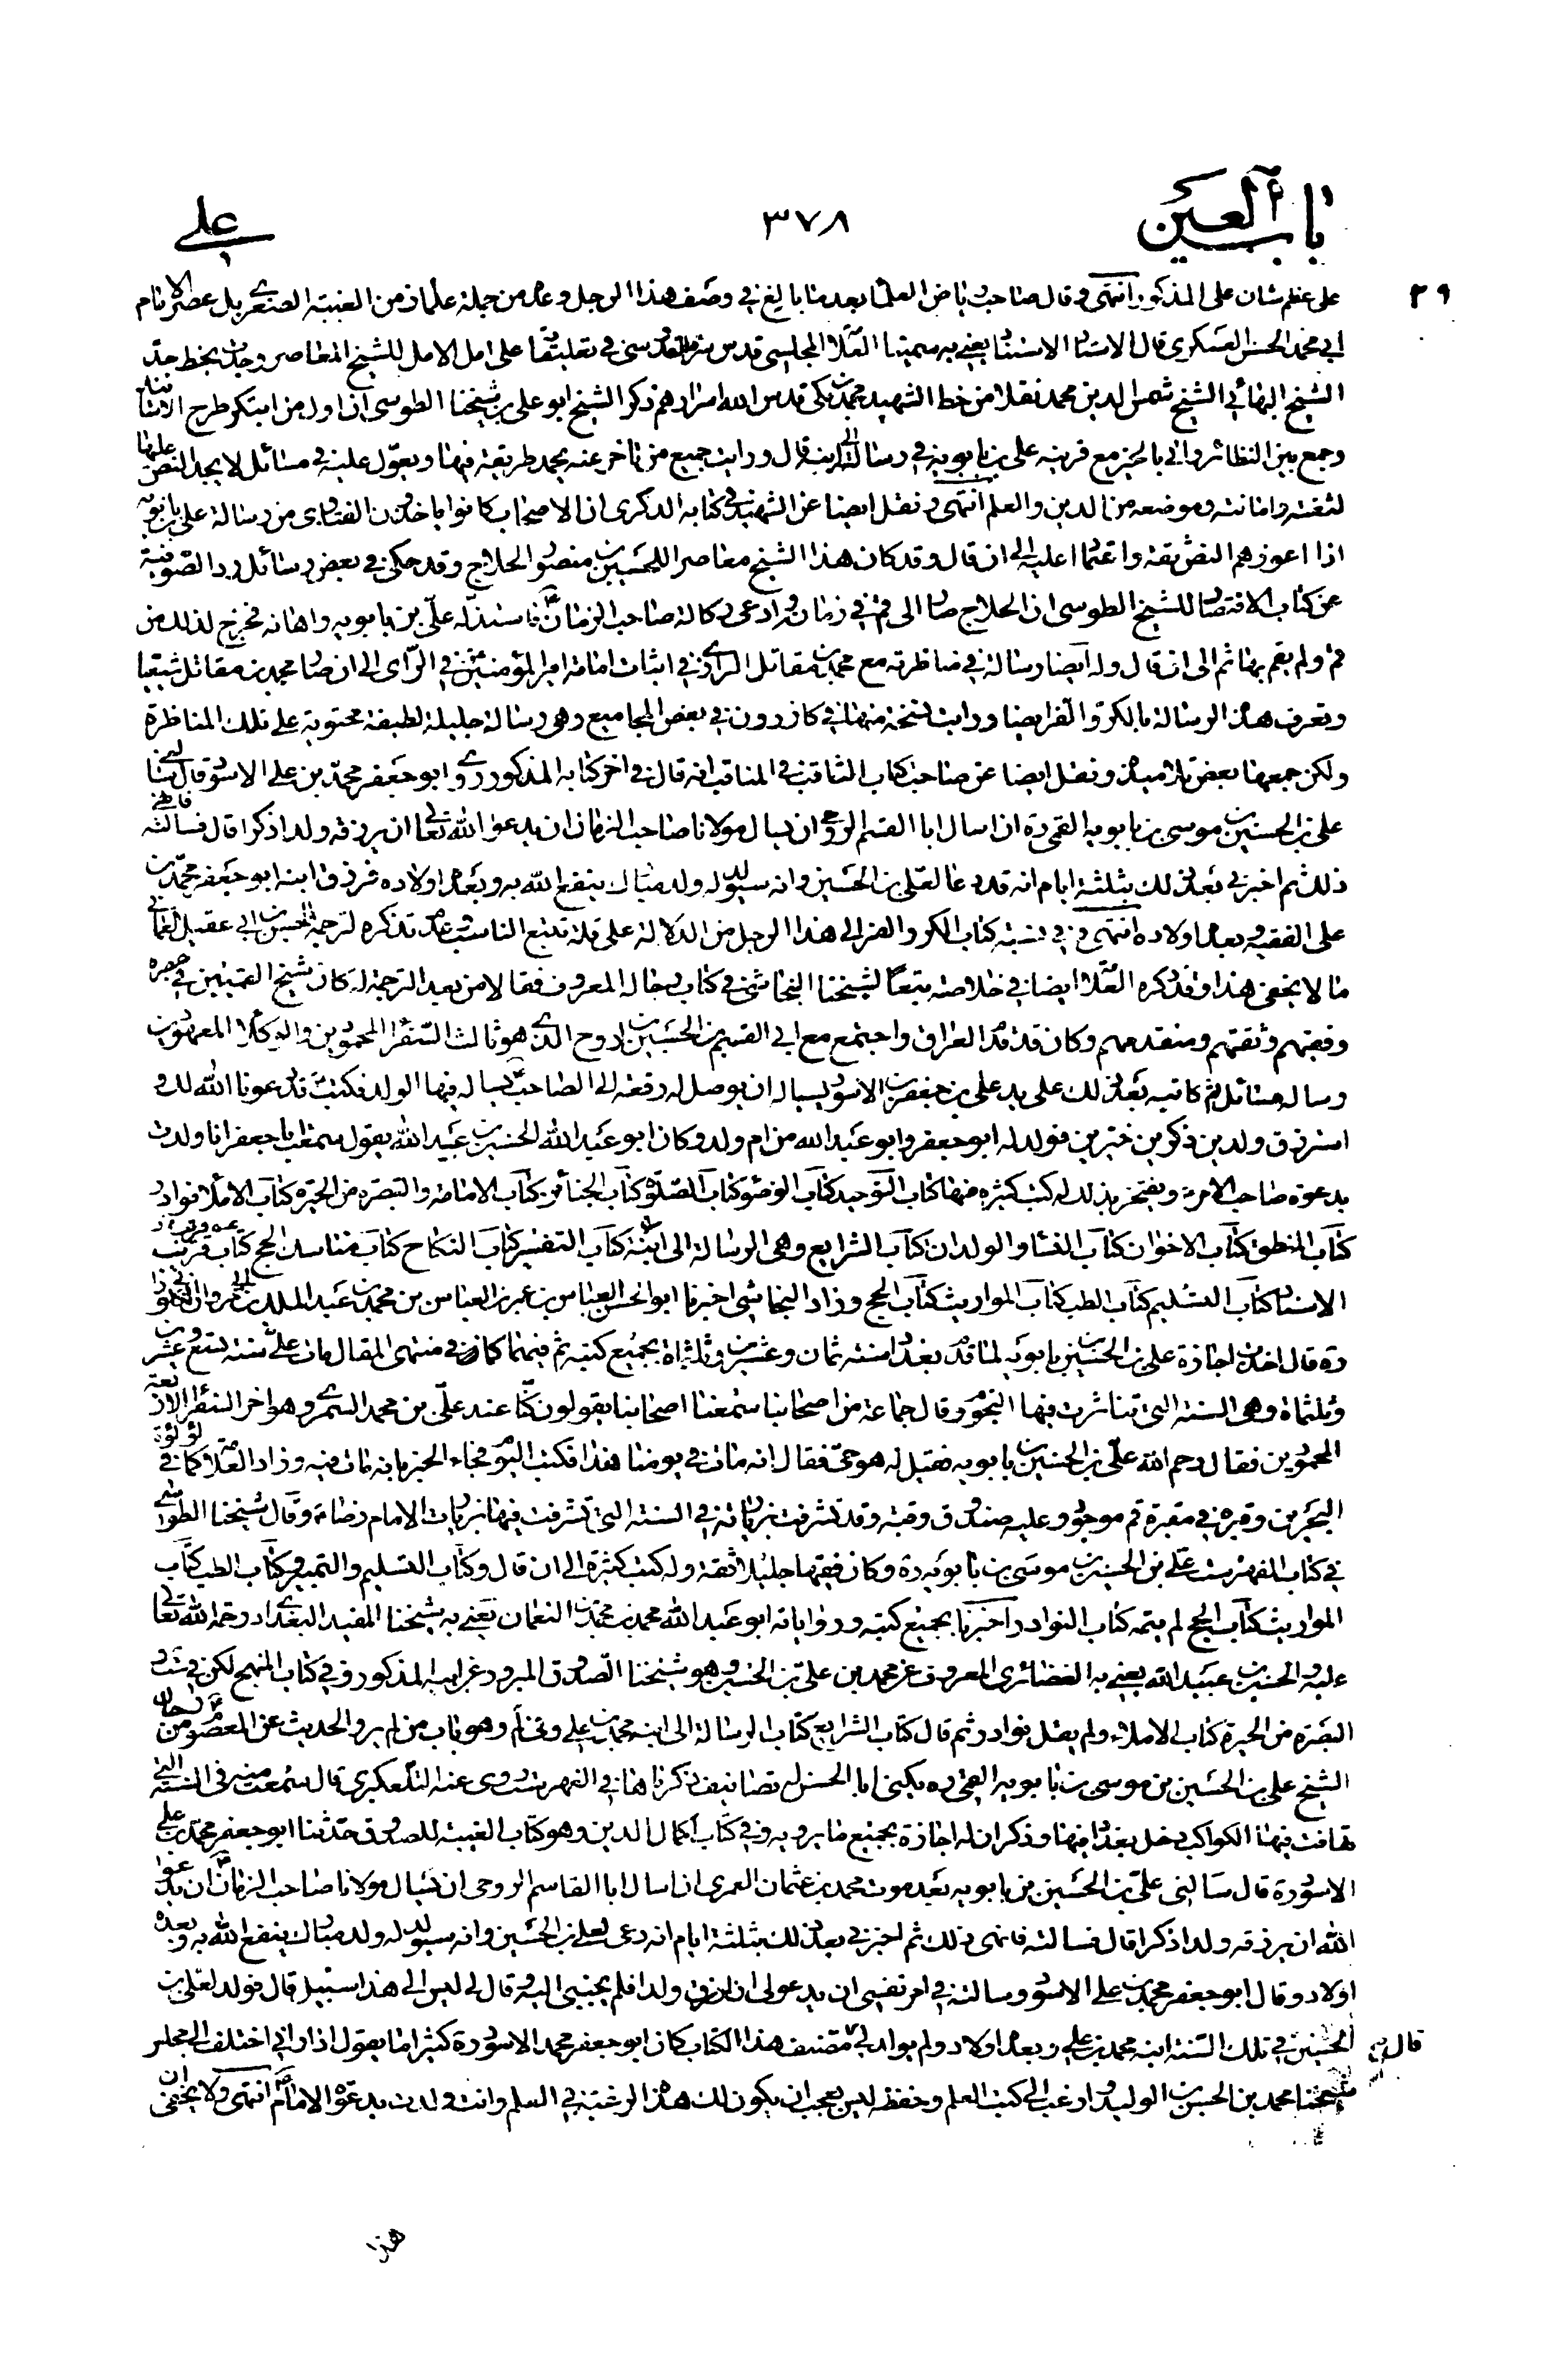 باب العين
٣٧٨
علي
٢٩
على عظم شان على المذكور انتهى وقال صاحب رياض العلما بعد ما بالغ في وصف هذا الرجل وعده من جملة علماء زمن الغيبة الصغرى بل عصر الامام
ابي محمد الحسن العسكرى قال الاستاد الاستناد يعنى به سمينا العلامة المجلسى قدس سره القدسى في تعليقاته على امل الامل للشيخ المعاصر وجدت بخط جد
الشيخ البهائي الشيخ شمس الدين محمد نقلا من خط الشهيد محمد بن مكى قدس الله اسرارهم ذكر الشيخ ابو على بن شيخنا الطوسى ان اول من ابتكر طرح الاسانيد
وجمع بين النظائر واتى بالخبر مع قرينه على بن بابويه في رسالته الى ابنه قال ورايت جميع من تاخر عنه يحمد طريقه فيها ويعول عليه في مسائل لا يجد النص عليها
لثقته وامانته وموضعه من الدين والعلم انتهى ونقل ايضا عن الشهيد في كتابه الذكرى ان الاصحاب كانوا ياخذون الفتاوى من رسالة على بن بابويه
اذا اعوزهم النص ثقة واعتمادا عليه الى ان قال وقد كان هذا الشيخ معاصرا للحسين بن منصور الحلاج وقد حكى في بعض رسائل رد الصوفية
عن كتاب الاقتصاد للشيخ الطوسى ان الحلاج صار الى قم في زمانه وادعى وكالة صاحب الزمان فاستذله على بن بابويه واهانه فخرج لذلك من
قم ولم يقم بها ثم الى ان قال وله ايضا رسالة في مناظرته مع محمد بن مقاتل الرازى في اثبات امامة امير المؤمنين في الرى الى ان صار محمد بن مقاتل شيعيا
وتعرف هذه الرسالة بالكر والفر ايضا ورايت نسخة منها في كازرون في بعض المجاميع وهى رسالة جليلة لطيفة محتوية على تلك المناظرة
ولكن جمعها بعض تلاميذه ونقل ايضا عن صاحب كتاب الثاقب في المناقب انه قال في اخر كتابه المذكور روى ابو جعفر محمد بن على الاسود قال سئلنى
على بن الحسين بن موسى بن بابويه القمى ره ان اسال ابا القسم الروحى ان يسال مولانا صاحب الزمان ان يدعو الله تعالى ان يرزقه ولدا ذكرا قال فسالته
ذلك ثم اخبرنى بعد ذلك بثلثة ايام انه قد دعا لعلى بن الحسين وانه سيولد له ولد مبارك ينفع الله به وبعده اولاده فرزق ابنه ابو جعفر محمد بن
على الفقيه وبعده اولاده انتهى وفي نسبة كتاب الكر والفر الى هذا الرجل من الدلالة على قلة تتبع الناسب عند تذكره لترجمة الحسن بن ابي عقيل العمانى
ما لا يخفى هذا وقد ذكره العلامة ايضا في خلاصته تبعا لشيخنا النجاشى في كتاب رجاله المعروف فقالا من بعد الترجمة له كان شيخ القميين في عصره
وفقيههم وثقتهم ومتقدمهم وكان قد قدم العراق واجتمع مع ابي القسم بن الحسين بن روح الذى هو ثالث السفراء المحمودين والوكلاء المعهودين
وساله مسائل ثم كاتبه بعد ذلك على يد على بن جعفر بن الاسود يساله ان يوصل له رقعة الى الصاحب يساله فيها الولد فكتب قد دعونا الله لك و
سترزق ولدين ذكرين خيرين فولد له ابو جعفر وابو عبد الله من ام ولد وكان ابو عبد الله الحسين بن عبيد الله يقول سمعت ابا جعفر انا ولدت
بدعوة صاحب الامر ويفتخر بذلك له كتب كثيرة منها كتاب التوحيد كتاب الوضوء كتاب الصلوة كتاب الجنائز كتاب الامامة والتبصرة من الحيرة كتاب الاملاء نوادر
كتاب المنطق كتاب الاخوان كتاب النساء والولدان كتاب الشرايع وهى الرسالة الى ابنه كتاب التفسير كتاب النكاح كتاب مناسك الحج كتاب قرب
الاسناد كتاب التسليم كتاب الطب كتاب المواريث كتاب الحج وزاد النجاشى اخبرنا ابو الحسن العباس بن عمر بن العباس بن محمد بن عبد الملك بن مروان الكلوذانى
ره قال اخذت اجازة على بن الحسين بن بابويه لما قدم بغداد سنة ثمان وعشرين وثلثماة بجميع كتبه ثم فيهما كما في منتهى المقال مات على سنة تسع وعشرين
وثلثماة وهى السنة التى تناثرت فيها النجوم وقال جماعة من اصحابنا سمعنا اصحابنا يقولون كنا عند على بن محمد السمرى وهو اخر السفراء الاربعة
المحمودين فقال رحم الله على بن الحسين بن بابويه فقيل له هو حى فقال انه مات في يومنا هذا فكتب اليوم فجاء الخبر بانه مات فيه وزاد العلامة كما في لؤلؤة
البحرين وقبره في مقبرة قم موجود وعليه صندوق وقبة وقد تشرفت بزيارته في السنة التى تشرفت فيها بزيارت الامام رضا وقال شيخنا الطوسى
في كتاب الفهرست على بن الحسين بن موسى بن بابويه ره وكان فقيها جليلا ثقة وله كتب كثيرة الى ان قال وكتاب التسليم والتمييز وكتاب الطب كتاب
المواريث كتاب الحج لم يتمه كتاب النوادر اخبرنا بجميع كتبه ورواياته ابو عبد الله محمد بن محمد بن النعمان يعنى به شيخنا المفيد البغدادى رحمة الله تعالى
عليه والحسين بن عبيد الله يعنى به الغضائرى المعروف عن محمد بن على بن الحسين وهو شيخنا الصدوق المبرور عن ابيه المذكور وفي كتاب المنهج لكن في
البصرة من الحيرة كتاب الاملاء ولم يقل نوادر ثم قال كتاب الشرايع كتاب الرسالة الى ابنه محمد بن على وهو باب من لم يرو الحديث عن المعصومين من رجال
الشيخ على بن الحسين بن موسى بن بابويه القمى ره يكنى ابا الحسن له تصانيف ذكرناها في الفهرست روى عنه التلعكبرى قال سمعت منه في السنة التى
تهافت فيها الكواكب دخل بغداد فيها وذكر ان له اجازة بجميع ما يرويه وفي كتاب اكمال الدين وهو كتاب الغيبة للصدوق حدثنا ابو جعفر محمد بن على
الاسود ره قال سالنى على بن الحسين بن بابويه بعد موت محمد بن عثمان العمرى ان اسال ابا القاسم الروحى ان يسال مولانا صاحب الزمان ان يدعو
الله ان يرزقه ولدا ذكرا قال فسالته فانهى ذلك ثم اخبرنى بعد ذلك بثلثة ايام انه دعى لعلى بن الحسين وانه سيولد له ولد مبارك ينفع الله به وبعده
اولاد وقال ابو جعفر محمد بن على الاسود وسالته في امر نفسى ان يدعو لى ان ارزق ولدا فلم يجبنى اليه وقال لى ليس الى هذا سبيل قال فولد لعلى بن
الحسين في تلك السنة ابنه محمد بن على وبعده اولاد ولم يولد لى مصنف هذا الكتاب كان ابو جعفر محمد الاسود ره كثيرا ما يقول اذا رانى اختلف الى مجلس
قال
شيخنا محمد بن الحسن بن الوليد وارغب الى كتب العلم وحفظه ليس بعجب ان يكون لك هذه الرغبة في العلم وانت ولدت بدعوة الامام انتهى ولا يخفى ان
هذا